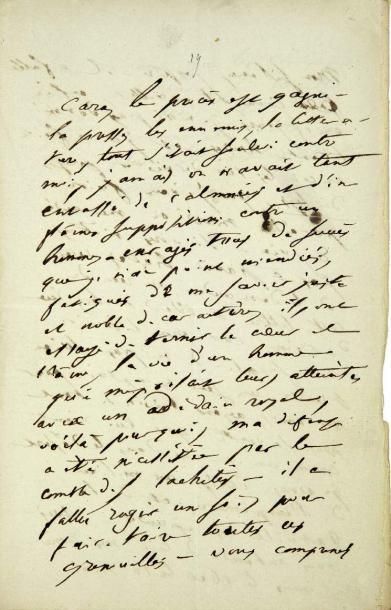 19
Cara, le procès est gagné —
la presse, les ennemis, la littérature
tout s'était soulevé contre
moi, jamais on n'avait tant
entassé de calomnies et d'in
fâmes suppositions contre un
homme — enragés tous de succès
que je n'ai point mendiés,
fatigués de me savoir juste
et noble de caractère, ils ont
essayé de ternir le cœur et
l'âme la vie d'un homme
qui méprisait leurs atteintes
avec un dédain royal,
voilà pourquoi ma défense
a été nécessitée par le
comble des lâchetés — il a
fallu rugir un fois pour
faire taire toutes ces
grenouilles — vous comprenez